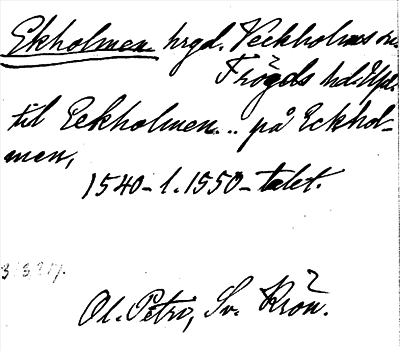 Ekholmen hrgd. Veckholms sn.
Trögds hd. Upl.
til Eekholmen... på Eckhol-
men,
1540- l. 1550-talet.
Ol. Petri, Sv. Krön.